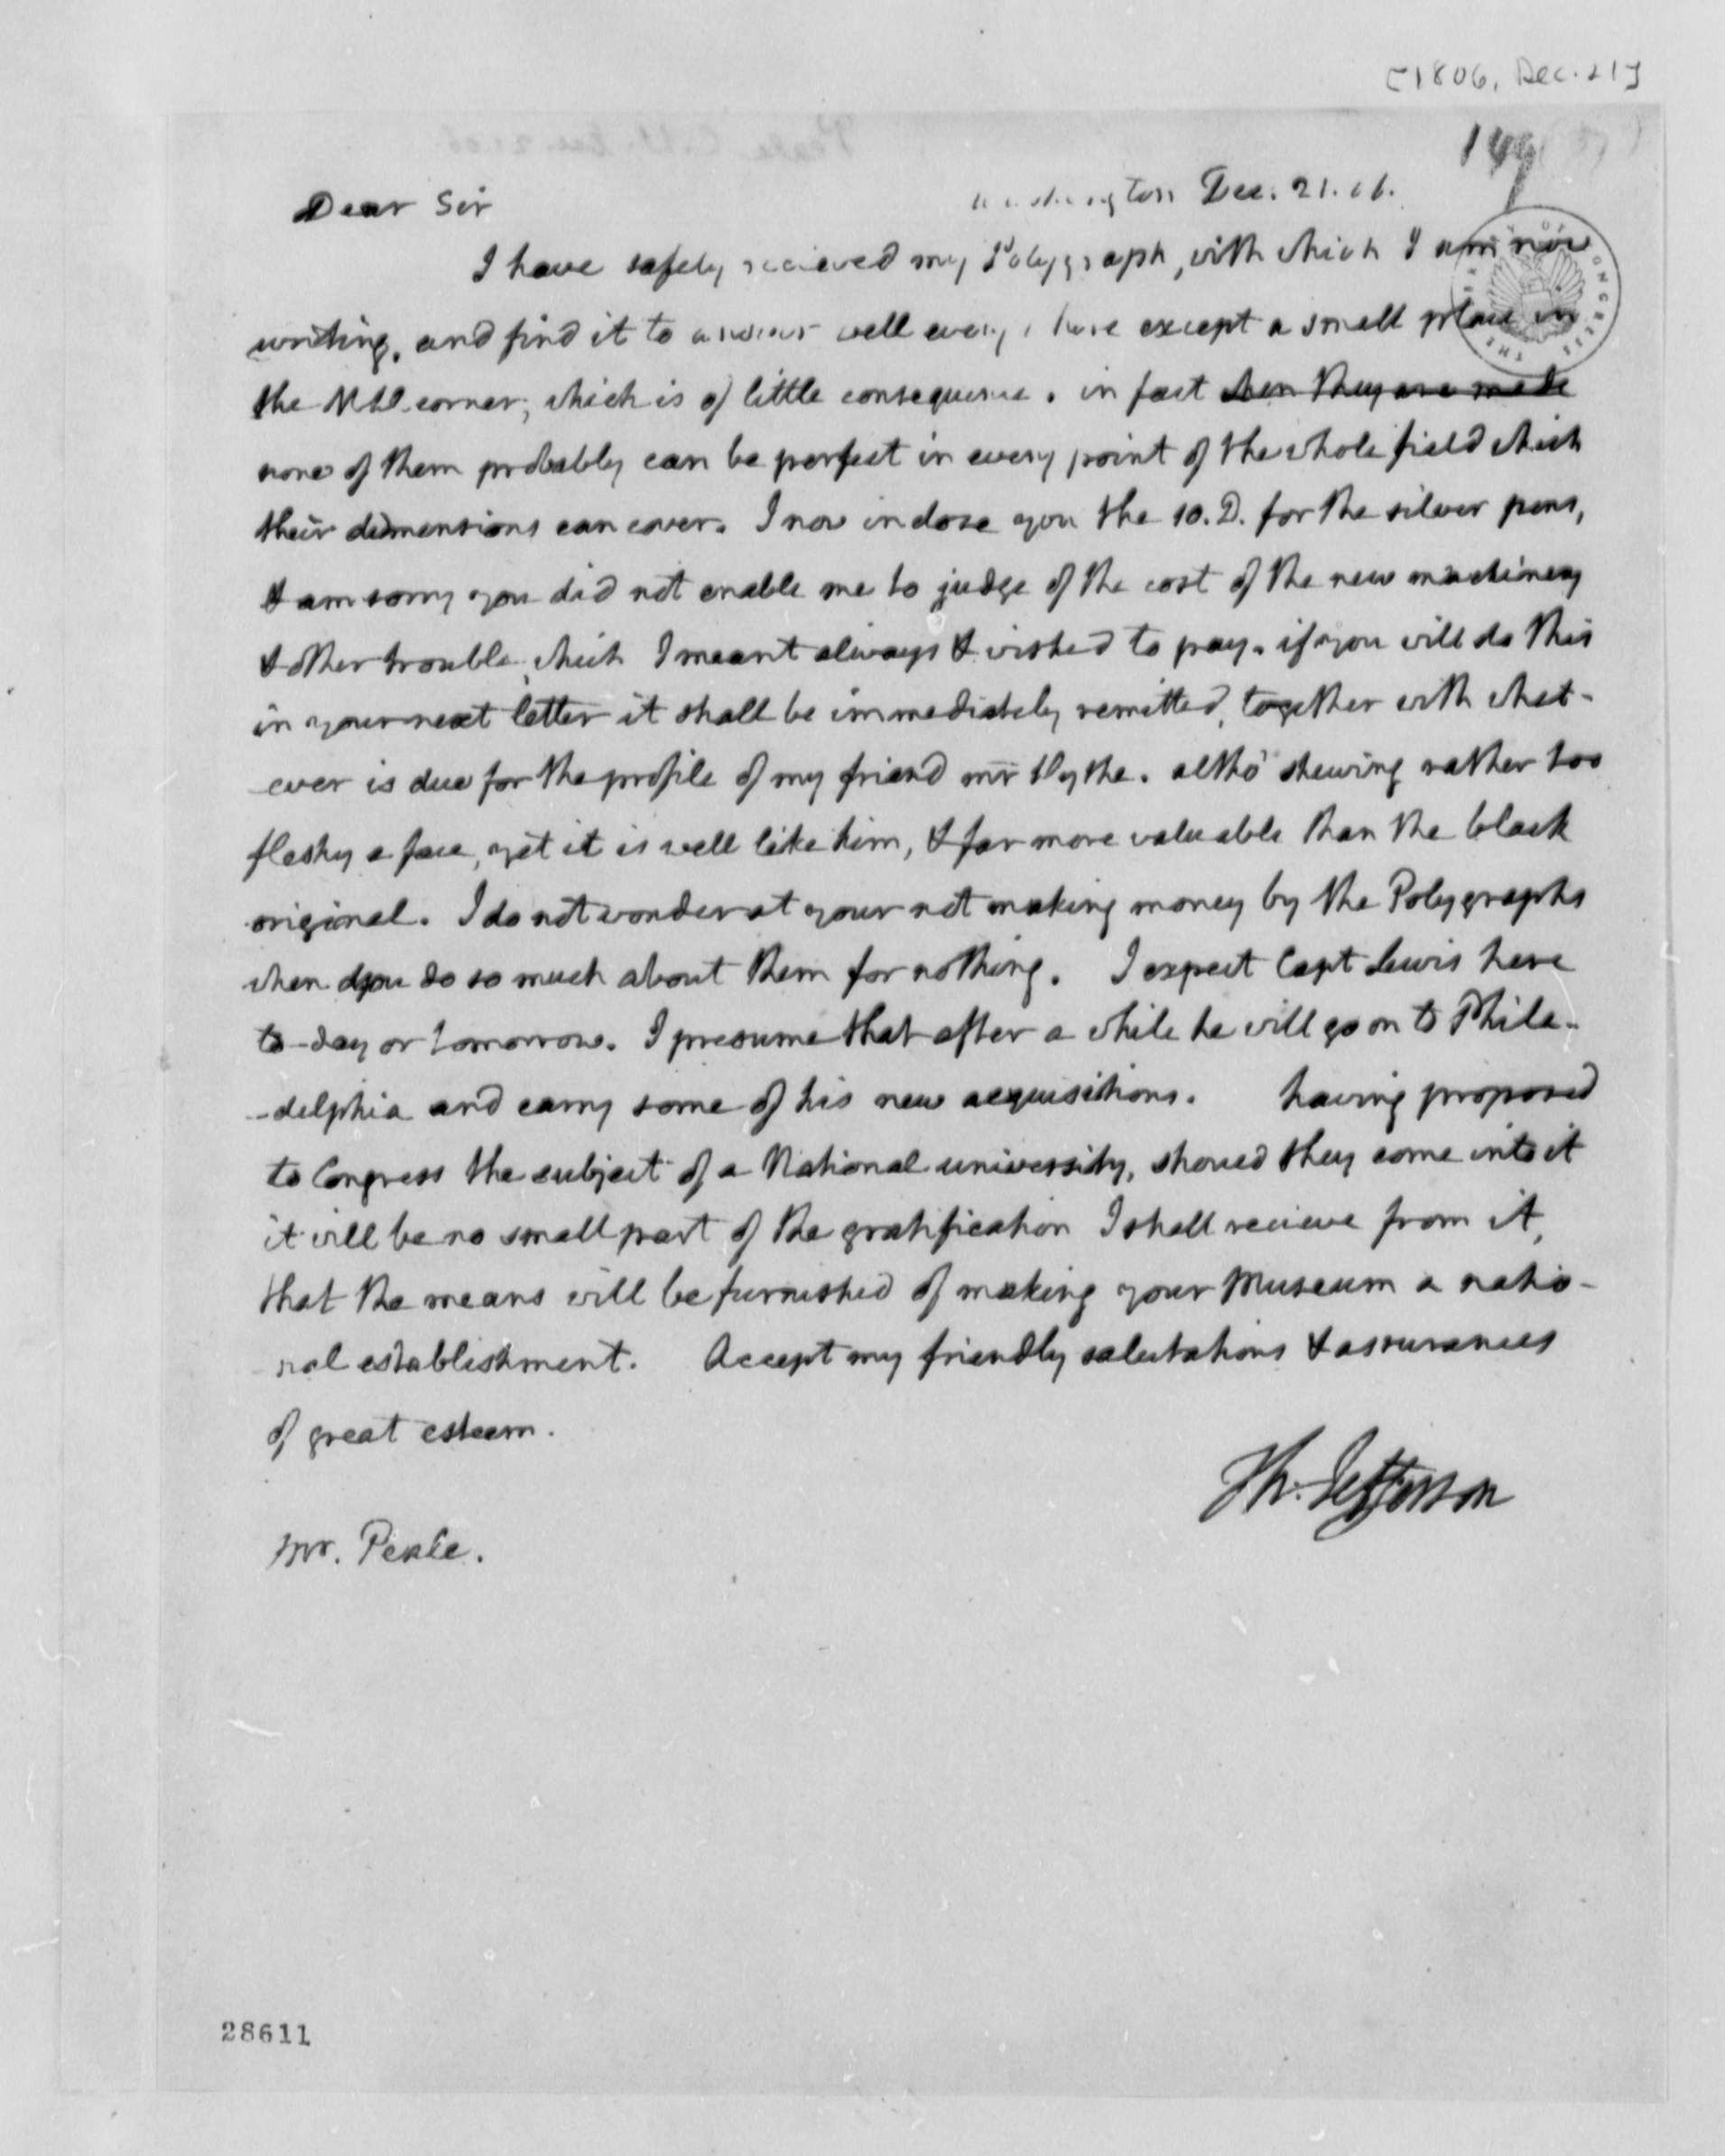 [1806, Dec. 21]
149
Dear Sir
Washington Dec. 21. 06.
I have safely recieved my Polygraph, with which I am now
writing, and find it to answer well every where except a small place in
the N.W. corner, which is of little consequence. in fact when they are made
none of them probably can be perfect in every point of the whole field which
their dimensions can cover. I now inclose you the 10. D. for the silver pens,
& am sorry you did not enable me to judge of the cost of the new machinery
& other trouble, which I meant always & wished to pay. if you will do this
in your next letter it shall be immediately remitted, together with what-
ever is due for the profile of my friend mr Wythe. altho' shewing rather too
fleshy a face, yet it is well like him, & far more valuable than the black
original. I do not wonder at your not making money by the Polygraphs
when you do so much about them for nothing. I expect Capt Lewis here
to-day or tomorrow. I presume that after a while he will go on to Phila-
-delphia and carry some of his new acquisitions. having proposed
to Congress the subject of a National university, should they come into it
it will be no small part of the gratification I shall recieve from it,
that the means will be furnished of making your Museum a natio-
nal establishment. Accept my friendly salutations & assurances
of great esteem.
Th: Jefferson
mr. Peale.
28611